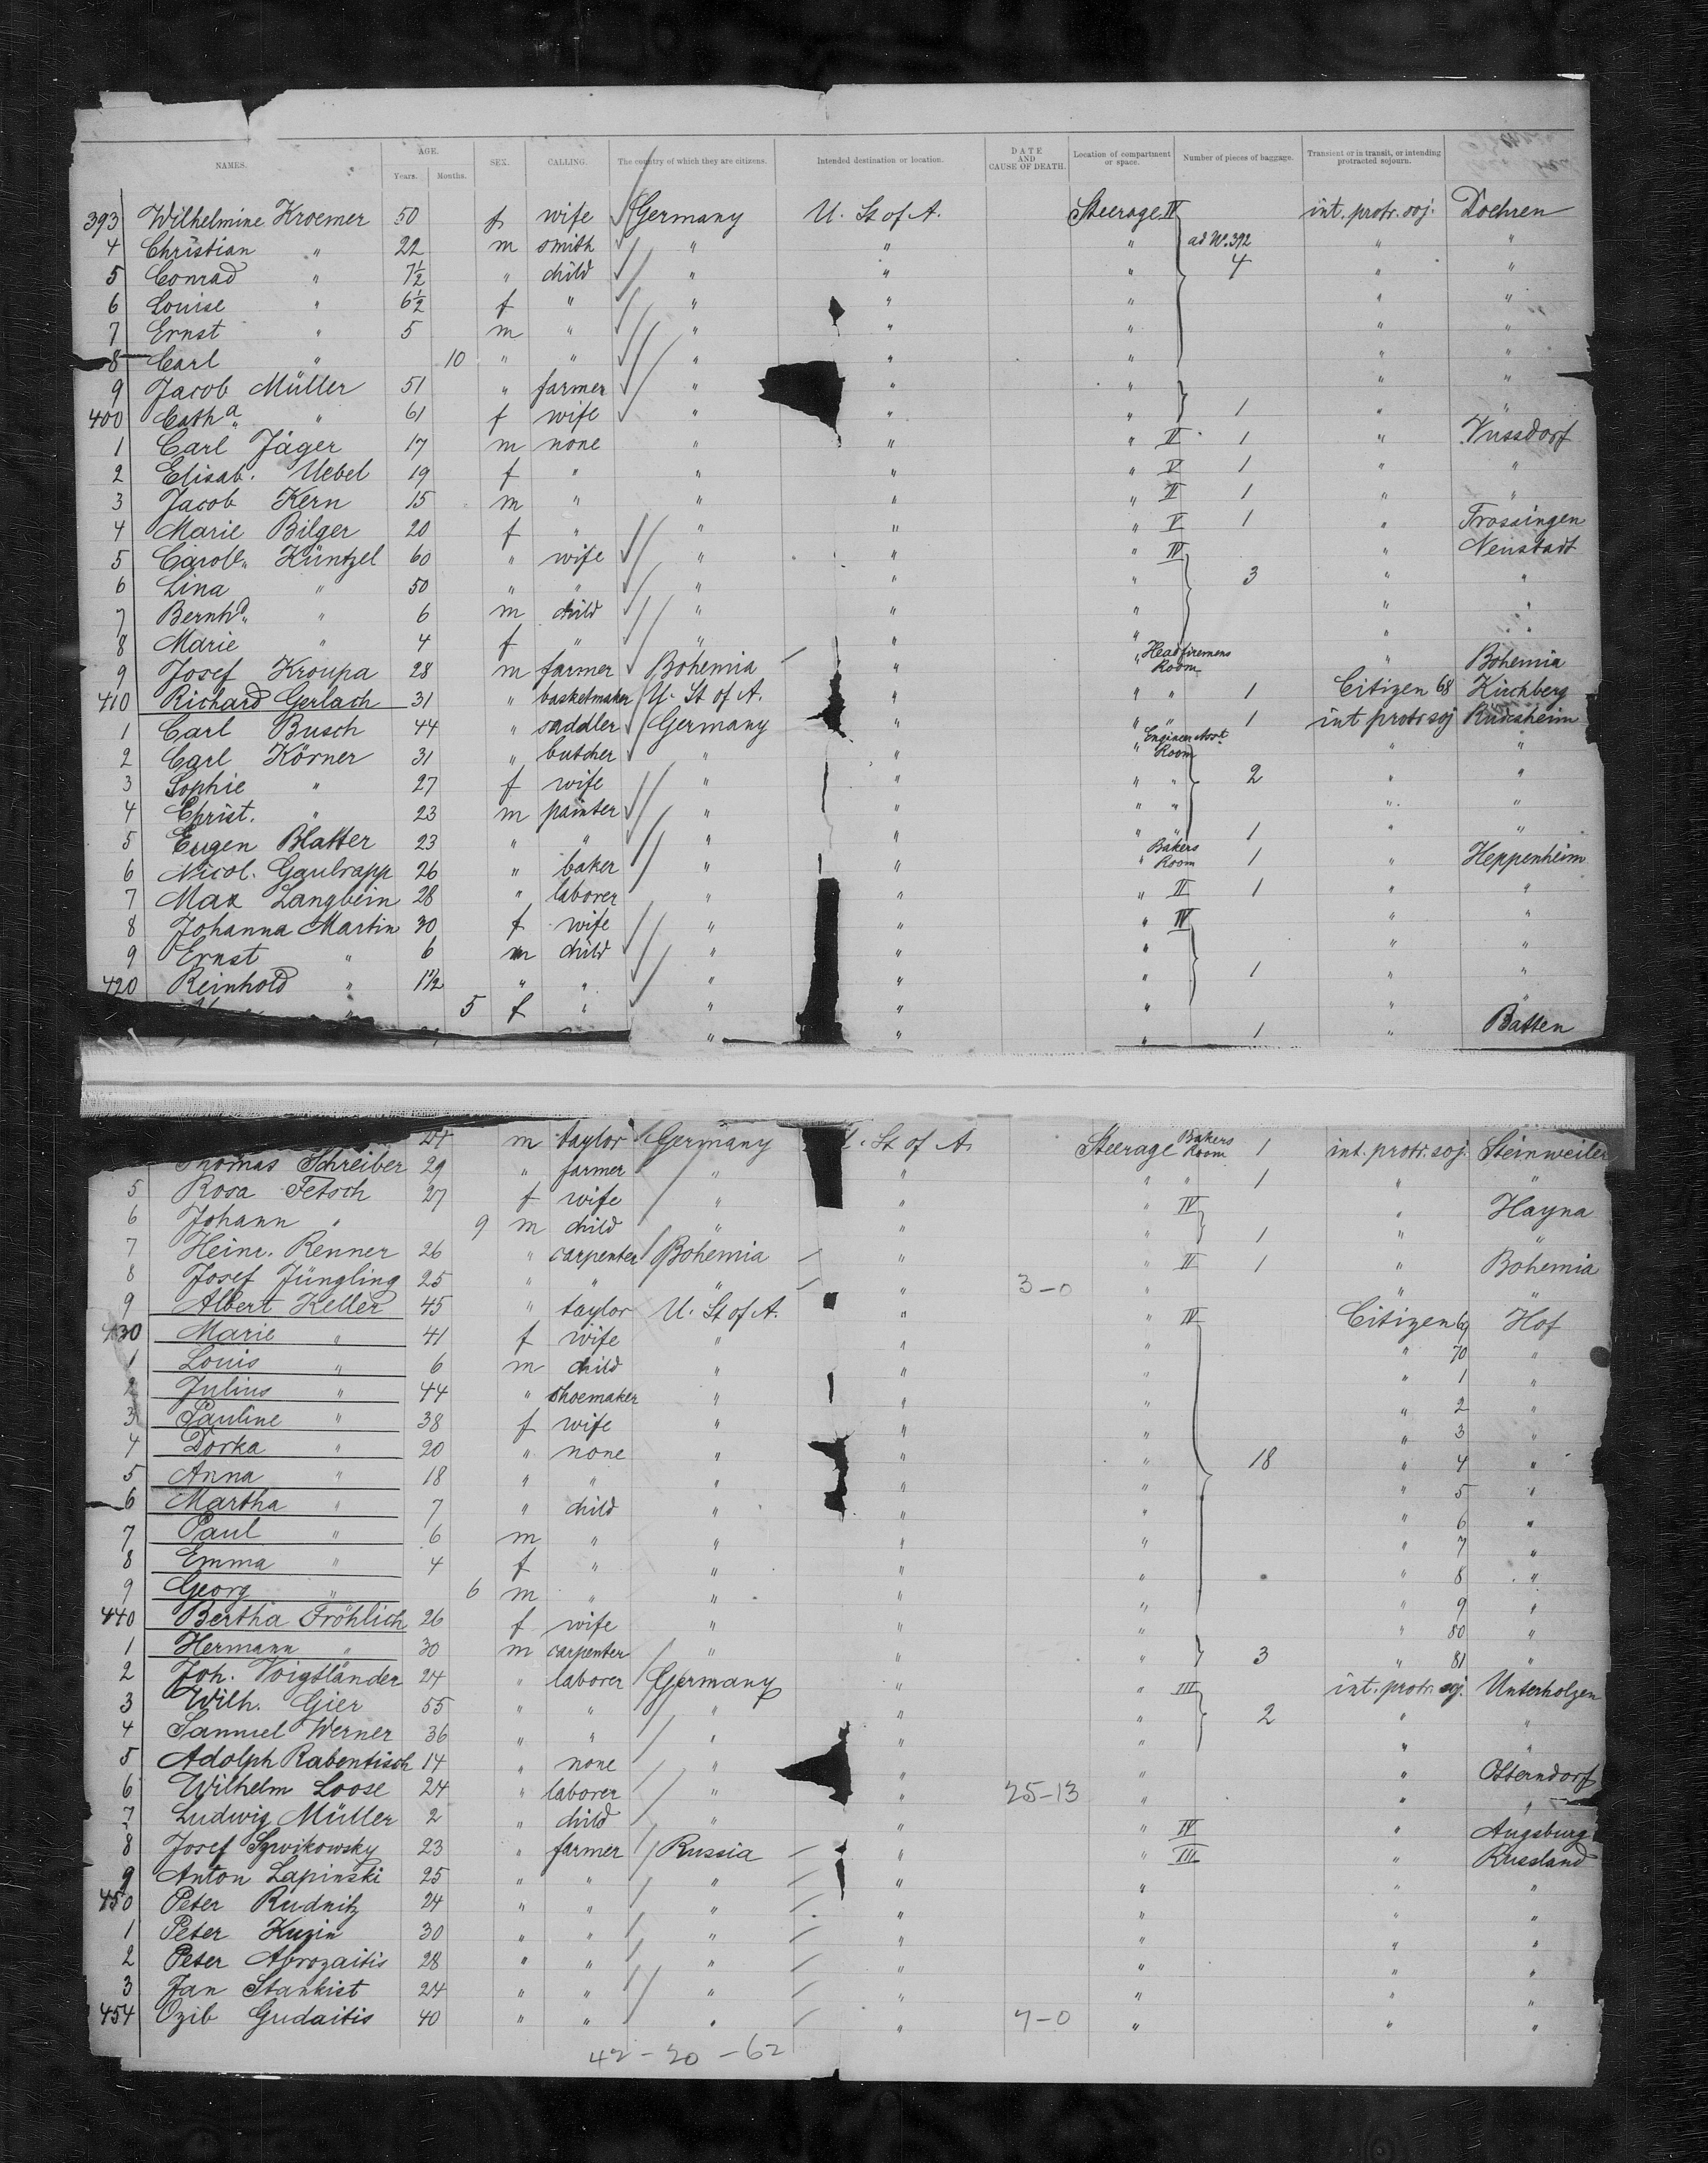 NAMES. AGE. Years. Months. SEX. CALLING. The country of which they are citizens. Intended destination or location. DATE AND CAUSE OF DEATH. Location of compartment or space. Number of pieces of baggage. Transient or in transit, or intending protracted sojourn.
393 Wilhelmine Kroemer 50 f wife Germany U. St of A. Steerage IV int. protr. soj. Doehren
4 Christian " 22 m smith " " " ad No. 392 " "
5 Conrad " 7½ " child " " " 4 " "
6 Louise " 6½ f " " " " " "
7 Ernst " 5 m " " " " " "
8 Carl " 10 " " " " " " "
9 Jacob Müller 51 " farmer " " " " "
400 Catha " 61 f wife " " " 1 " "
1 Carl Jäger 17 m none " " " II 1 " Nussdorf
2 Elisab. Uebel 19 f " " " " V 1 " "
3 Jacob Kern 15 m " " " " II 1 " "
4 Marie Bilger 20 f " " " " V 1 " Trossingen
5 Caroll. Küntzel 60 " wife " " " IV " Neustadt
6 Lina " 50 " " " " " 3 " "
7 Bernhd. " 6 m child " " " " "
8 Marie " 4 f " " " " " "
9 Josef Kroupa 28 m farmer Bohemia " " Headfiremens Room " Bohemia
410 Richard Gerlach 31 " basketmaker U. St of A. " " " 1 Citizen 68 Kirchberg
1 Carl Busch 44 " saddler Germany " " " 1 int protr soj Rudesheim
2 Carl Körner 31 " butcher " " " Engineer Asst. Room " "
3 Sophie " 27 f wife " " " " 2 " "
4 Christ. " 23 m painter " " " " " "
5 Eugen Blatter 23 " " " " " " 1 " "
6 Nicol. Gaubrapp 26 " baker " " " Bakers Room 1 " Heppenheim
7 Max Langbein 28 " laborer " " " II 1 " "
8 Johanna Martin 30 f wife " " " IV " "
9 Ernst " 6 m child " " " " "
420 Reinhold " 1½ " " " " " 1 " "
" 5 f " " " " " "
" " " 1 " Batten
24 m taylor Germany St of A. Steerage Bakers Room 1 int. protr. soj. Steinweiler
Thomas Schreiber 29 " farmer " " " " 1 " "
5 Rosa Fetsch 27 f wife " " " IV " Hayna
6 Johann " 9 m child " " " 1 " "
7 Heinr. Renner 26 " carpenter Bohemia " " II 1 " Bohemia
8 Josef Jüngling 25 " " " " 3-0 " " "
9 Albert Keller 45 " taylor U. St of A. " " IV Citizen 69 Hof
430 Marie " 41 f wife " " " " 70 "
1 Louis " 6 m child " " " " 1 "
2 Julius " 44 " shoemaker " " " " 2 "
3 Pauline " 38 f wife " " " " 3 "
4 Dorka " 20 " none " " " 18 " 4 "
5 Anna " 18 " " " " " " 5 "
6 Martha " 7 " child " " " " 6 "
7 Paul " 6 m " " " " " 7 "
8 Emma " 4 f " " " " " 8 "
9 Georg " 6 m " " " " " 9 "
440 Bertha Fröhlich 26 f wife " " " " 80 "
1 Hermann " 30 m carpenter " " " 3 " 81 "
2 Joh. Voigtländer 24 " laborer Germany " " III int. protr. soj. Unterholzen
3 Wilh. Gier 55 " " " " " 2 " "
4 Samuel Werner 36 " " " " " " "
5 Adolph Rabentisch 14 " none " " " " Otterndorf
6 Wilhelm Loose 24 " laborer " " 25-13 " " "
7 Ludwig Müller 2 " child " " " IV " Augsburg
8 Josef Szwikowsky 23 " farmer Russia " " III " Russland
9 Anton Lapinski 25 " " " " " " "
450 Peter Rudnitz 24 " " " " " " "
1 Peter Kuzin 30 " " " " " " "
2 Peter Abrozaitis 28 " " " " " " "
3 Jan Stankist 24 " " " " " " "
454 Ozib Gudaitis 40 " " " " 7-0 " " "
42-20-62